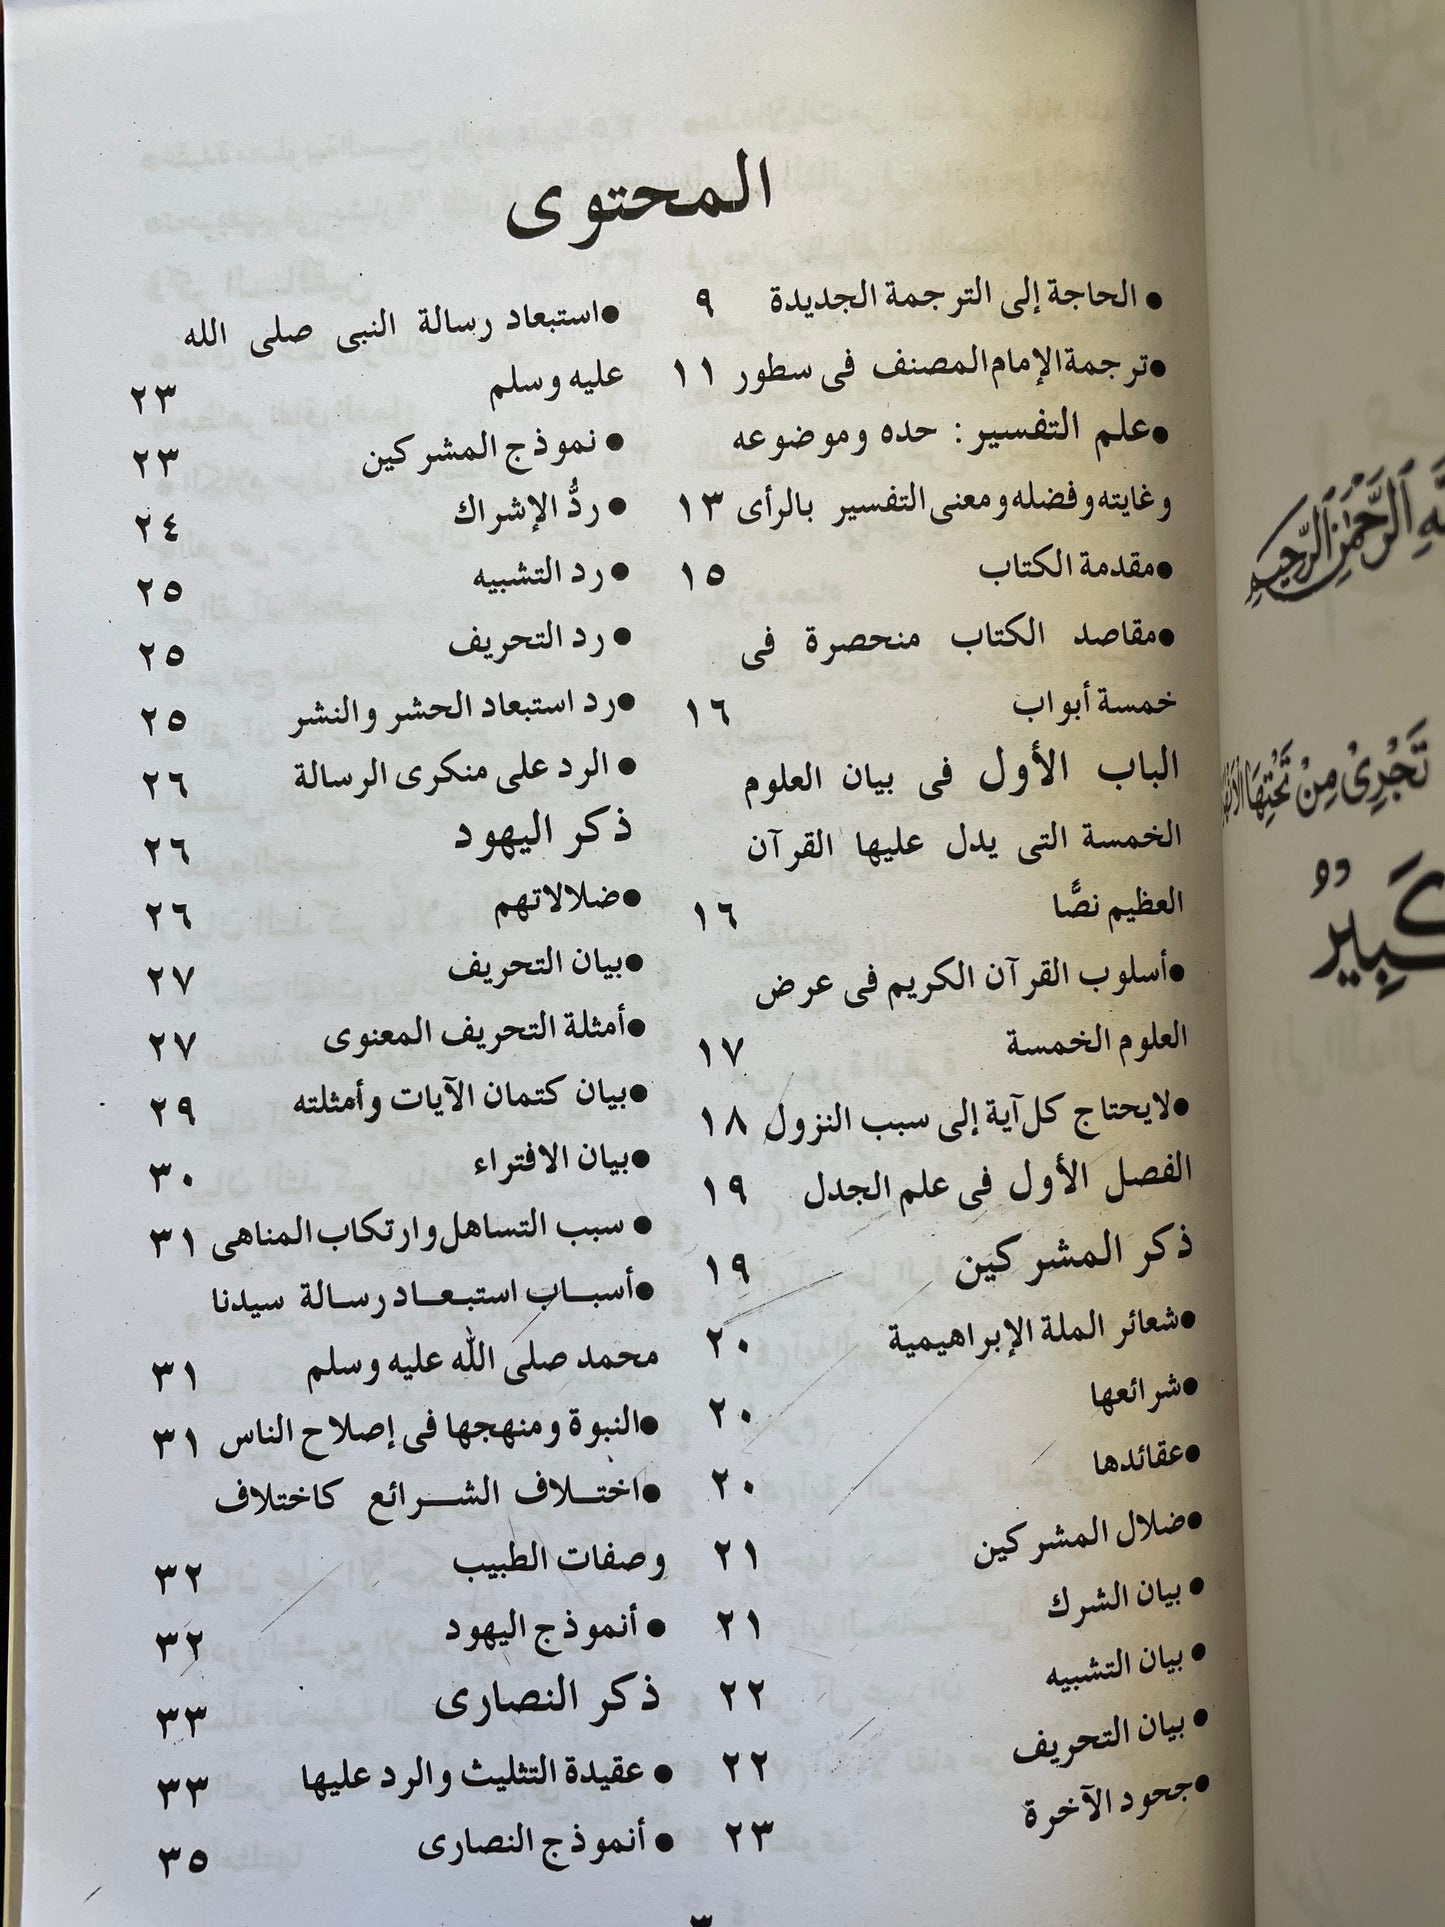 المحتوى
● الحاجة إلى الترجمة الجديدة ٩
●ترجمة الإمام المصنف فى سطور ١١
●علم التفسير: حده وموضوعه
وغايته وفضله ومعنى التفسير بالرأى ١٣
●مقدمة الكتاب ١٥
●مقاصد الكتاب منحصرة فى
خمسة أبواب ١٦
الباب الأول فى بيان العلوم
الخمسة التى يدل عليها القرآن
العظيم نصًّا ١٦
●أسلوب القرآن الكريم فى عرض
العلوم الخمسة ١٧
●لايحتاج كل آية إلى سبب النزول ١٨
الفصل الأول فى علم الجدل ١٩
ذكر المشركين ١٩
●شعائر الملة الإبراهيمية ٢٠
●شرائعها ٢٠
●عقائدها ٢٠
●ضلال المشركين ٢١
● بيان الشرك ٢١
● بيان التشبيه ٢٢
● بيان التحريف ٢٢
●جحود الآخرة ٢٣
●استبعاد رسالة النبى صلى الله
عليه وسلم ٢٣
● نموذج المشركين ٢٣
● ردُّ الإشراك ٢٤
● رد التشبيه ٢٥
● رد التحريف ٢٥
●رد استبعاد الحشر والنشر ٢٥
● الرد على منكرى الرسالة ٢٦
ذكر اليهود ٢٦
●ضلالاتهم ٢٦
●بيان التحريف ٢٧
●أمثلة التحريف المعنوى ٢٧
●بيان كتمان الآيات وأمثلته ٢٩
●بيان الافتراء ٣٠
● سبب التساهل وارتكاب المناهى ٣١
●أسباب استبعاد رسالة سيدنا
محمد صلى الله عليه وسلم ٣١
●النبوة ومنهجها فى إصلاح الناس ٣١
●اختلاف الشرائع كاختلاف
وصفات الطبيب ٣٢
● أنموذج اليهود ٣٢
ذكر النصارى ٣٣
● عقيدة التثليث والرد عليها ٣٣
● أنموذج النصارى ٣٥
٣
ٱلرَّحْمَٰنِ ٱلرَّحِيمِ
تَجْرِىْ مِنْ تَحْتِهَا الْأَنْهَارُ